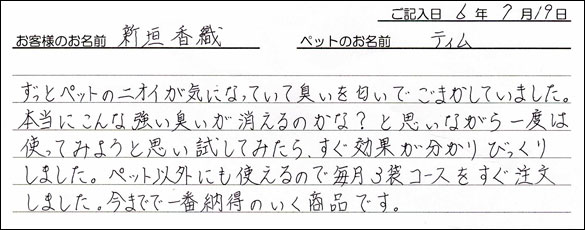 ご記入日 6 年 7 月 19 日
お客様のお名前 新垣香織 ペットのお名前 ティム
ずっとペットのニオイが気になっていて臭いを匂いでごまかしていました。
本当にこんな強い臭いが消えるのかな？と思いながら一度は
使ってみようと思い試してみたら、すぐ効果が分かりびっくり
しました。ペット以外にも使えるので毎月3袋コースをすぐ注文
しました。今までで一番納得のいく商品です。